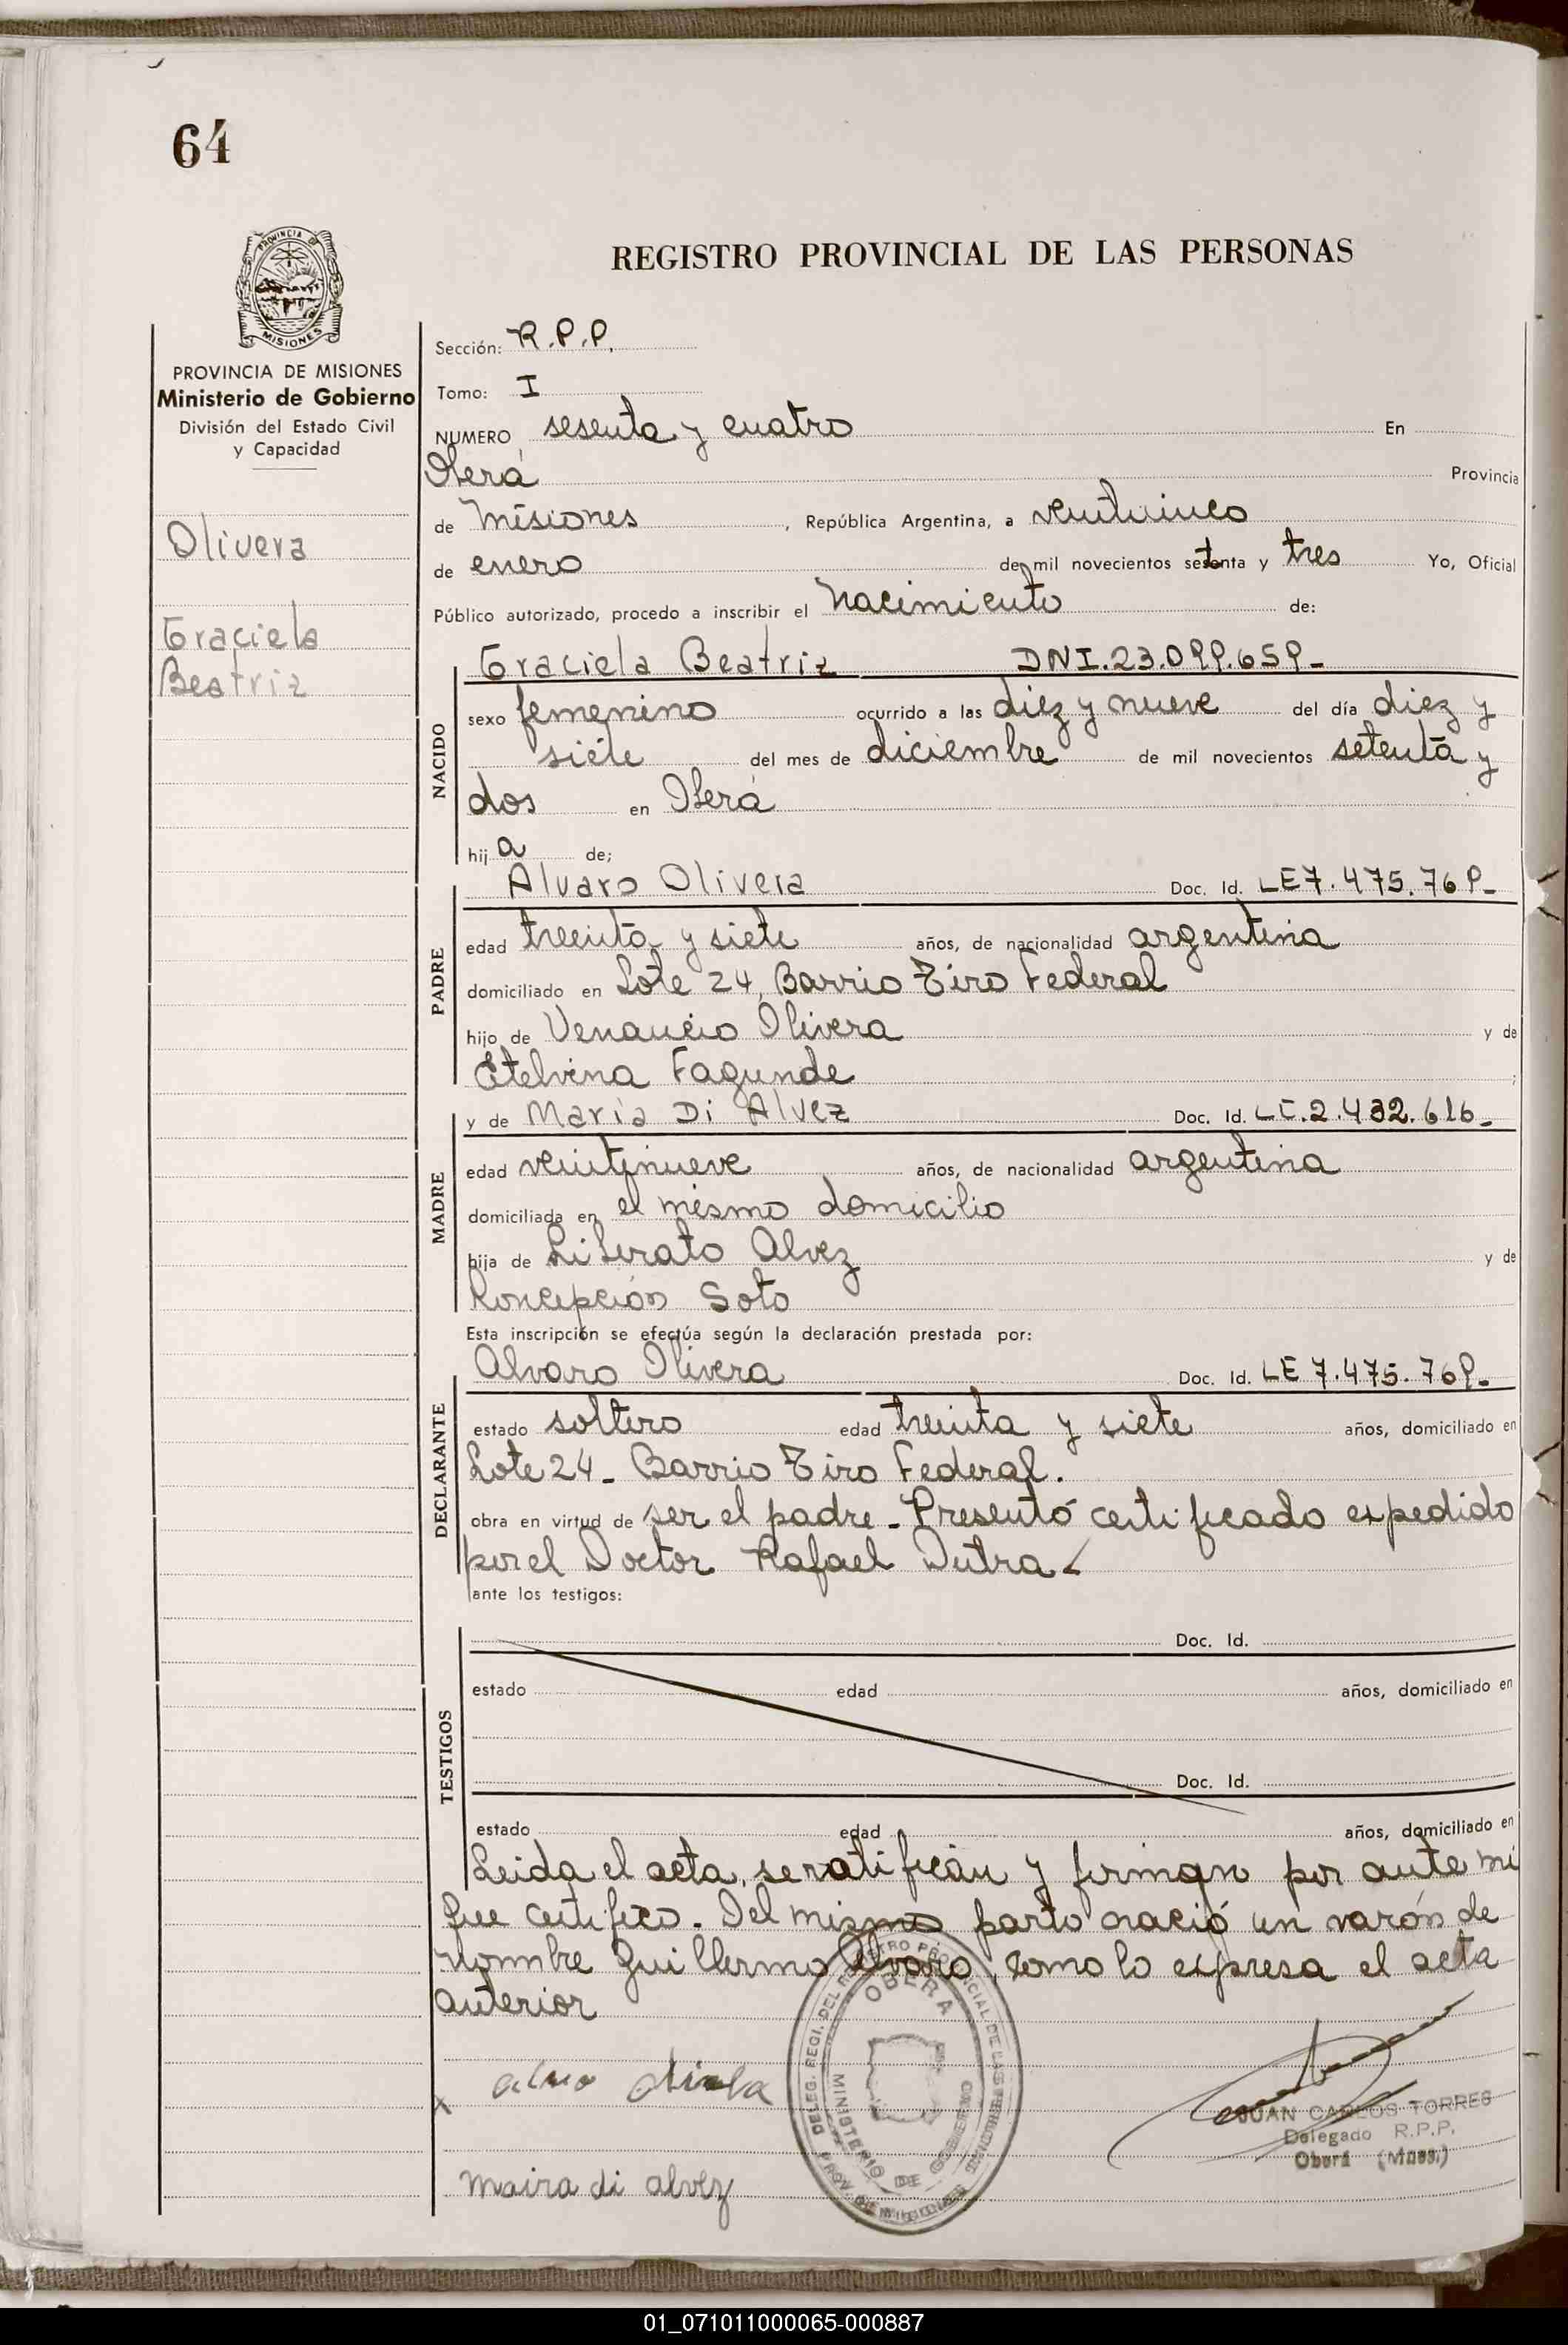 64
REGISTRO PROVINCIAL DE LAS PERSONAS
PROVINCIA DE MISIONES
MISIONES
PROVINCIA DE MISIONES
Ministerio de Gobierno
División del Estado Civil
y Capacidad
Olivera
Graciela
Beatriz
Sección: R.P.P.
Tomo: I
NUMERO sesenta y cuatro En
Oberá Provincia
de Misiones, República Argentina, a veinticinco
de enero de mil novecientos setenta y tres Yo, Oficial
Público autorizado, procedo a inscribir el nacimiento de:
NACIDO
Graciela Beatriz DNI.23.099.659-
sexo femenino ocurrido a las diez y nueve del día diez y
siete del mes de diciembre de mil novecientos setenta y
dos en Oberá
hija de;
PADRE
Alvaro Olivera Doc. Id. LE7.475.769-
edad treinta y siete años, de nacionalidad argentina
domiciliado en Lote 24, Barrio Tiro Federal
hijo de Venancio Olivera y de
Etelvina Fagunde;
MADRE
y de María Di Alvez Doc. Id. LC.2.432.616-
edad veintinueve años, de nacionalidad argentina
domiciliada en el mismo domicilio
hija de Liberato Alvez y de
Concepción Soto
Esta inscripción se efectúa según la declaración prestada por:
DECLARANTE
Alvaro Olivera Doc. Id. LE 7.475.769-
estado soltero edad treinta y siete años, domiciliado en
Lote 24- Barrio Tiro Federal.
obra en virtud de ser el padre - Presentó certificado expedido
por el Doctor Rafael Dutra
ante los testigos:
TESTIGOS
Doc. Id.
estado edad años, domiciliado en
Doc. Id.
estado edad años, domiciliado en
Leida el acta, se ratifican y firman por ante mi
que certifico. Del mismo parto nació un varón de
nombre Guillermo Alvaro, como lo expresa el acta
anterior
DELEG. REGI. DEL REGISTRO PROVINCIAL DE LAS PERSONAS
OBERA
MINISTERIO DE GOBIERNO
PROV. DE MISIONES
x
maira di alvez
JUAN CARLOS TORRES
Delegado R.P.P.
Oberá (Mnes.)
01_071011000065-000887